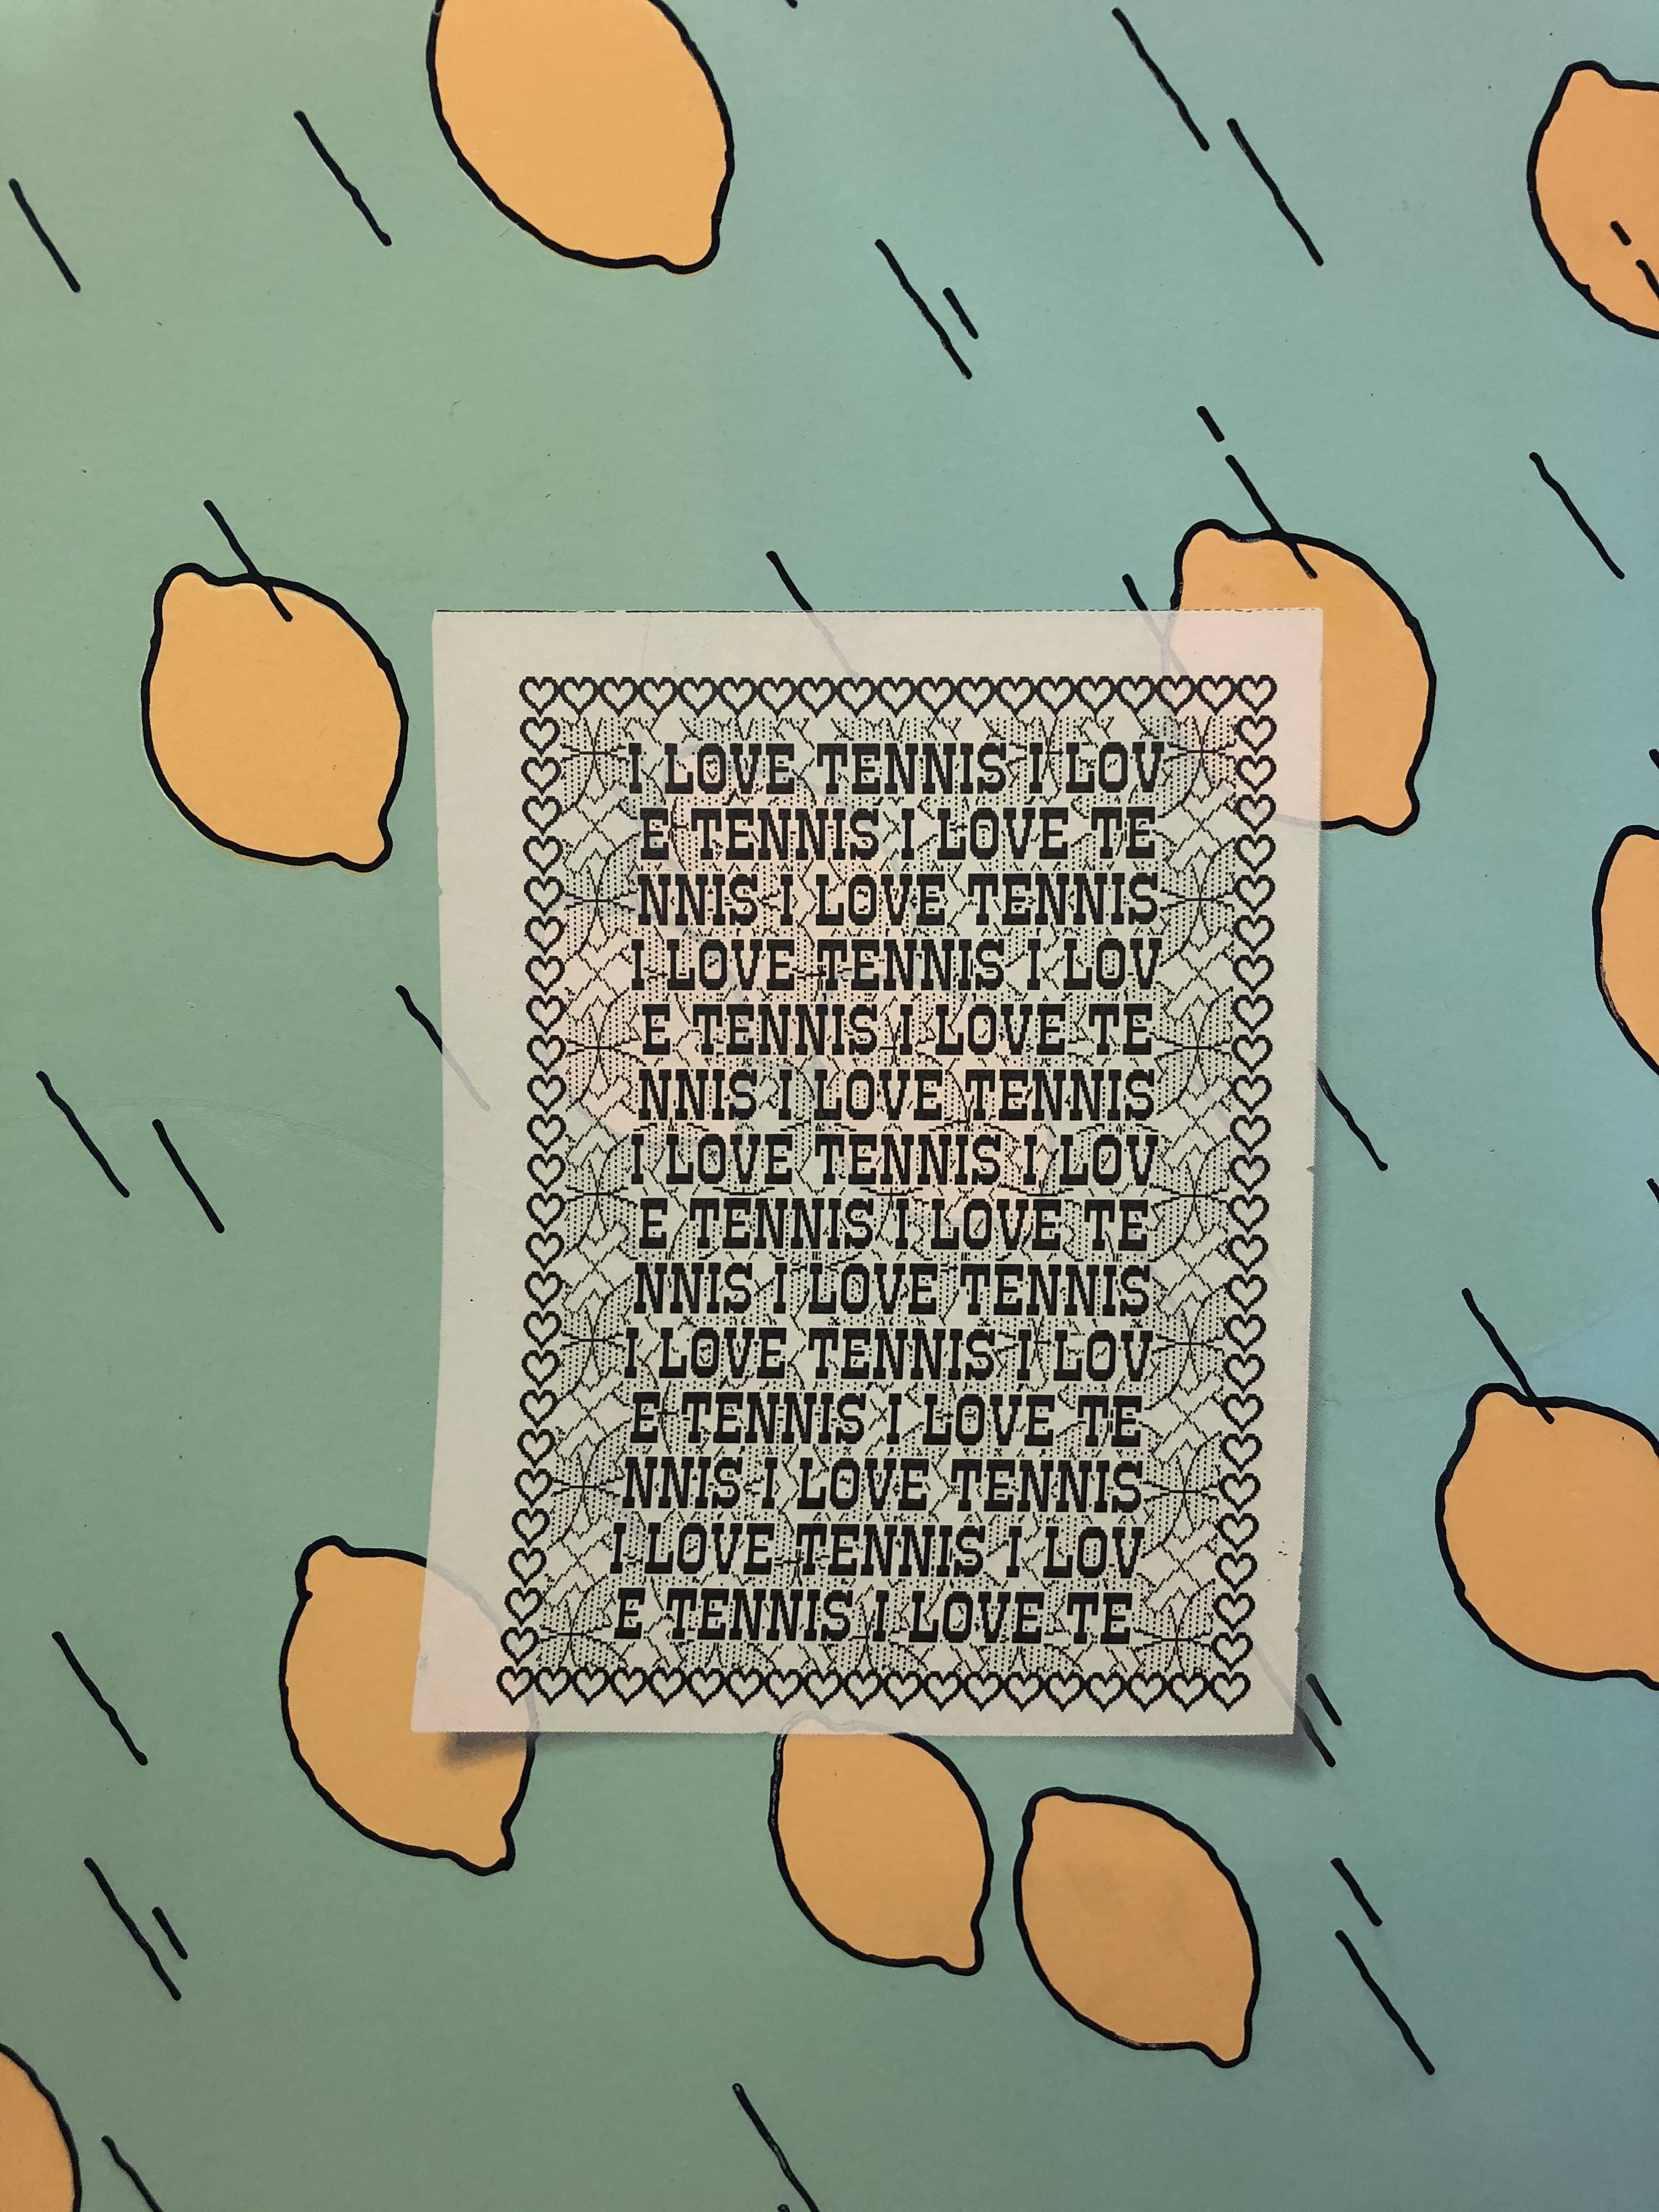 I LOVE TENNIS I LOV
E TENNIS I LOVE TE
NNIS I LOVE TENNIS
I LOVE TENNIS I LOV
E TENNIS I LOVE TE
NNIS I LOVE TENNIS
I LOVE TENNIS I LOV
E TENNIS I LOVE TE
NNIS I LOVE TENNIS
I LOVE TENNIS I LOV
E TENNIS I LOVE TE
NNIS I LOVE TENNIS
I LOVE TENNIS I LOV
E TENNIS I LOVE TE